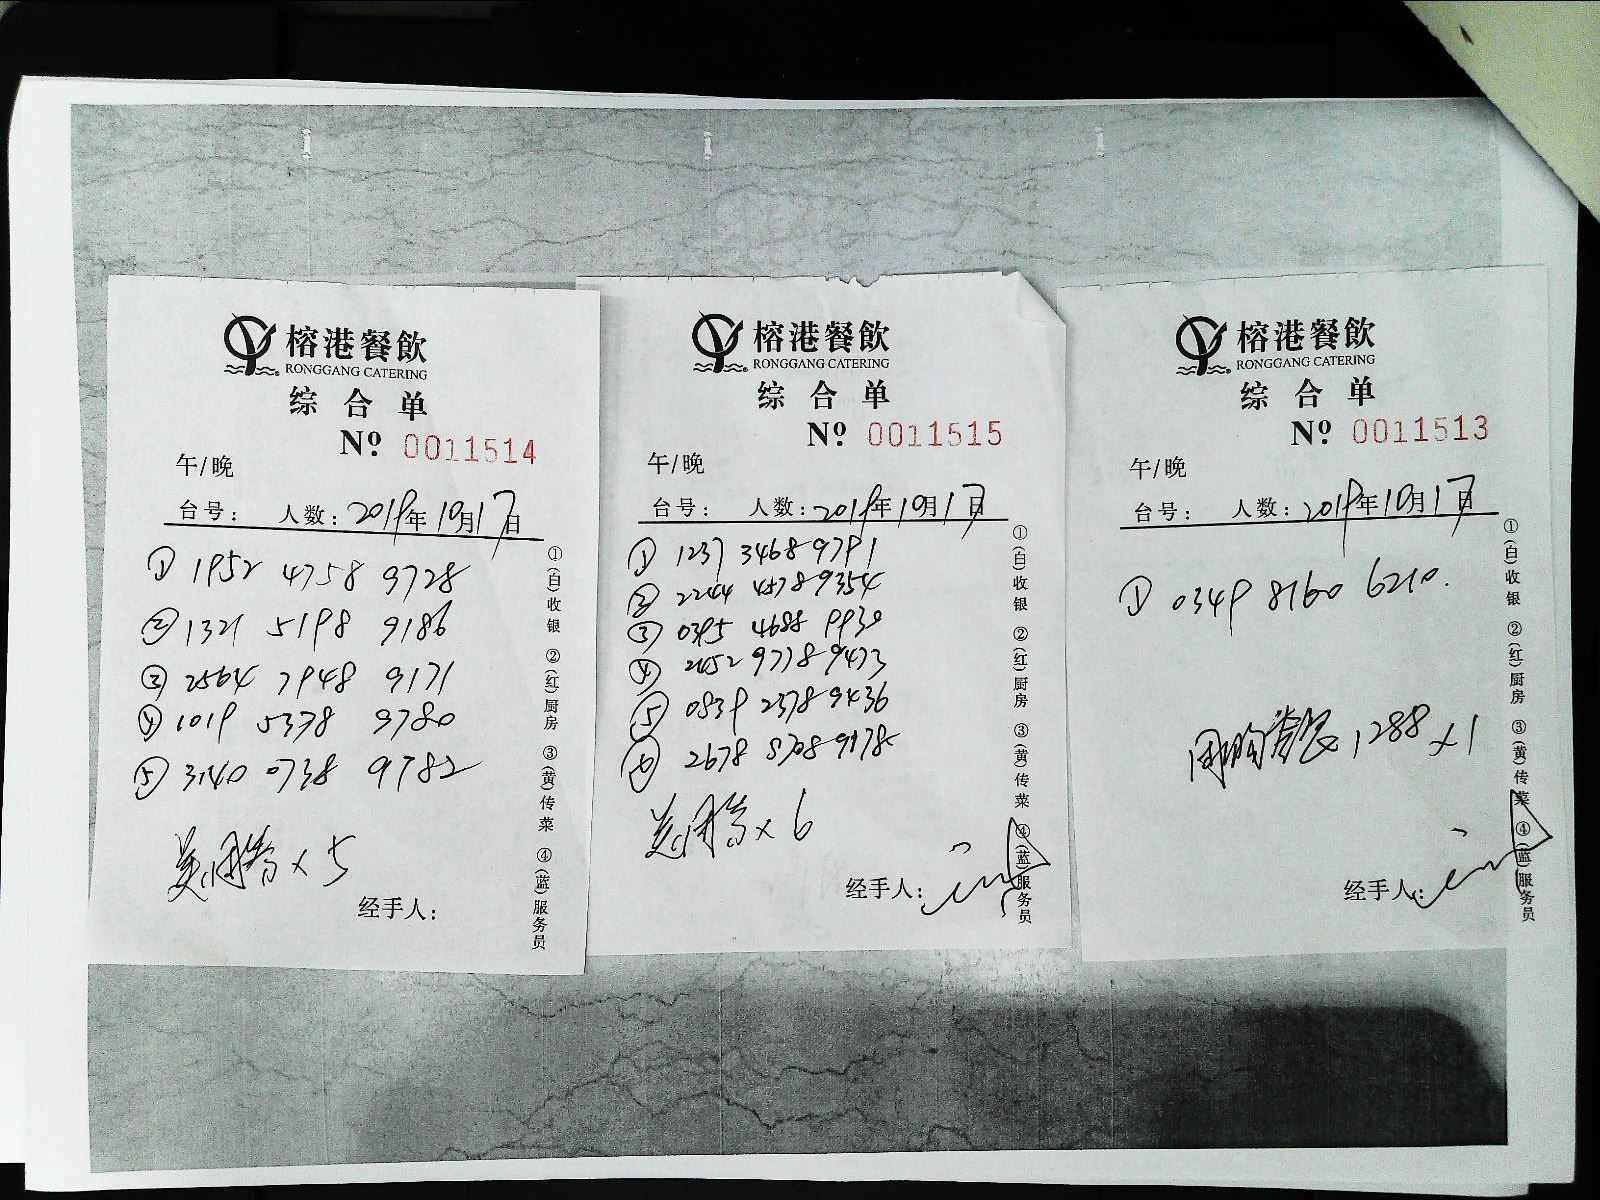 榕港餐飲
RONGGANG CATERING
综合单
Nº 0011514
午/晚
台号: 人数: 2019年10月17日
① 1952 4758 9728
② 1321 5198 9186
③ 2564 7948 9171
④ 1019 5378 9780
⑤ 3140 0738 9782
美团券×5
经手人:
①(白)收银 ②(红)厨房 ③(黄)传菜 ④(蓝)服务员
榕港餐飲
RONGGANG CATERING
综合单
Nº 0011515
午/晚
台号: 人数: 2019年10月17日
① 1237 3468 9791
② 2244 4578 9354
③ 0395 4688 9930
④ 2452 9778 9473
⑤ 0839 2378 9436
⑥ 2678 8708 9178
美团券×6
经手人:
①(白)收银 ②(红)厨房 ③(黄)传菜 ④(蓝)服务员
榕港餐飲
RONGGANG CATERING
综合单
Nº 0011513
午/晚
台号: 人数: 2019年10月17日
① 0349 8160 6210.
团购套餐1288×1
经手人:
①(白)收银 ②(红)厨房 ③(黄)传菜 ④(蓝)服务员